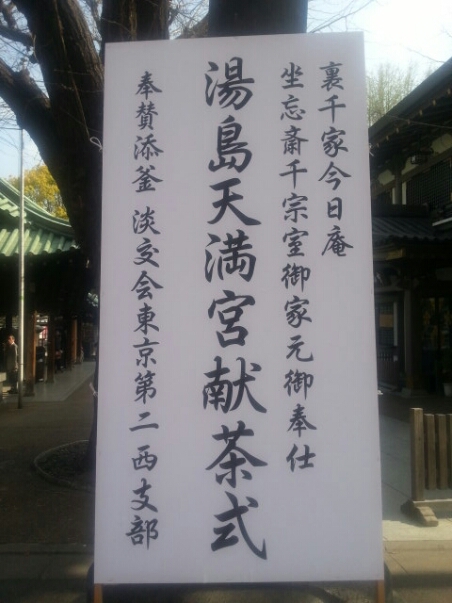 裏千家今日庵
坐忘斎千宗室御家元御奉仕
湯島天満宮献茶式
奉賛添釜 淡交会東京第二西支部